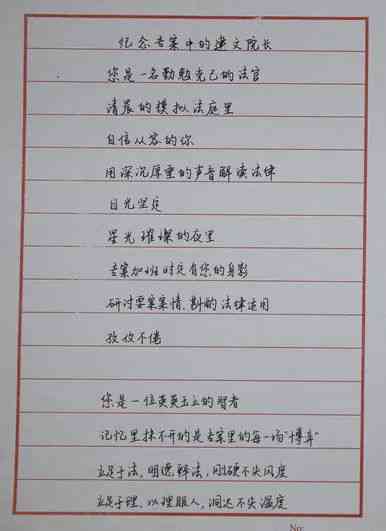 忆念专案中的建文院长
您是一名勤勉克己的法官
清晨的模拟法庭里
自信从容的你
用深沉厚重的声音解读法律
目光坚定
星光璀璨的夜里
专案加班时定有您的身影
研讨要案案情、斟酌法律适用
孜孜不倦
您是一位英英玉立的智者
记忆里抹不开的是专案里的每一场“博弈”
立足于法，明德释法，刚硬不失风度
立足于理、以理服人，洞达不失温度
No: